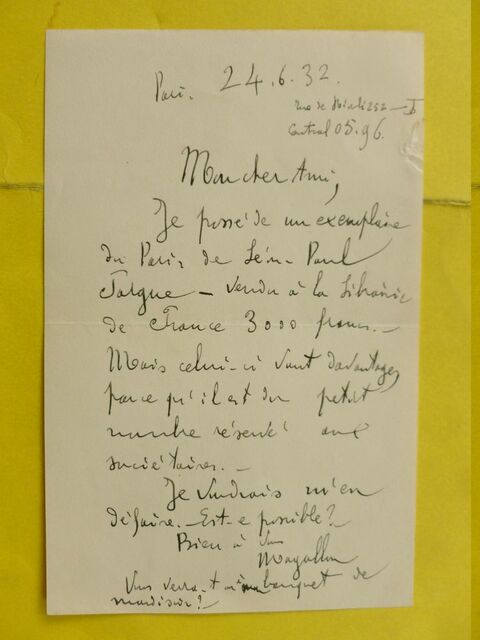 Paris. 24.6.32.
rue de
Central 05.96.
Mon cher Ami,
Je possède un exemplaire
du Paris de Léon-Paul
Fargue — vendu à la Librairie
de France 3000 francs. —
Mais celui-ci vaut davantage,
parce qu'il est du petit
nombre réservé aux
sociétaires. —
Je voudrais m'en
défaire. — Est-ce possible?
Bien à vous
Magallon
Vous verra-t-on au banquet de